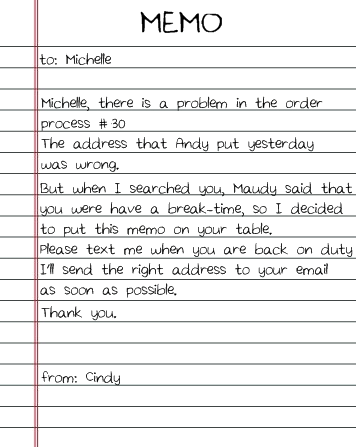 MEMO
to: Michelle
Michelle, there is a problem in the order
process # 30
The address that Andy put yesterday
was wrong.
But when I searched you, Maudy said that
you were have a break-time, so I decided
to put this memo on your table.
Please text me when you are back on duty
I'll send the right address to your email
as soon as possible.
Thank you.
from: Cindy